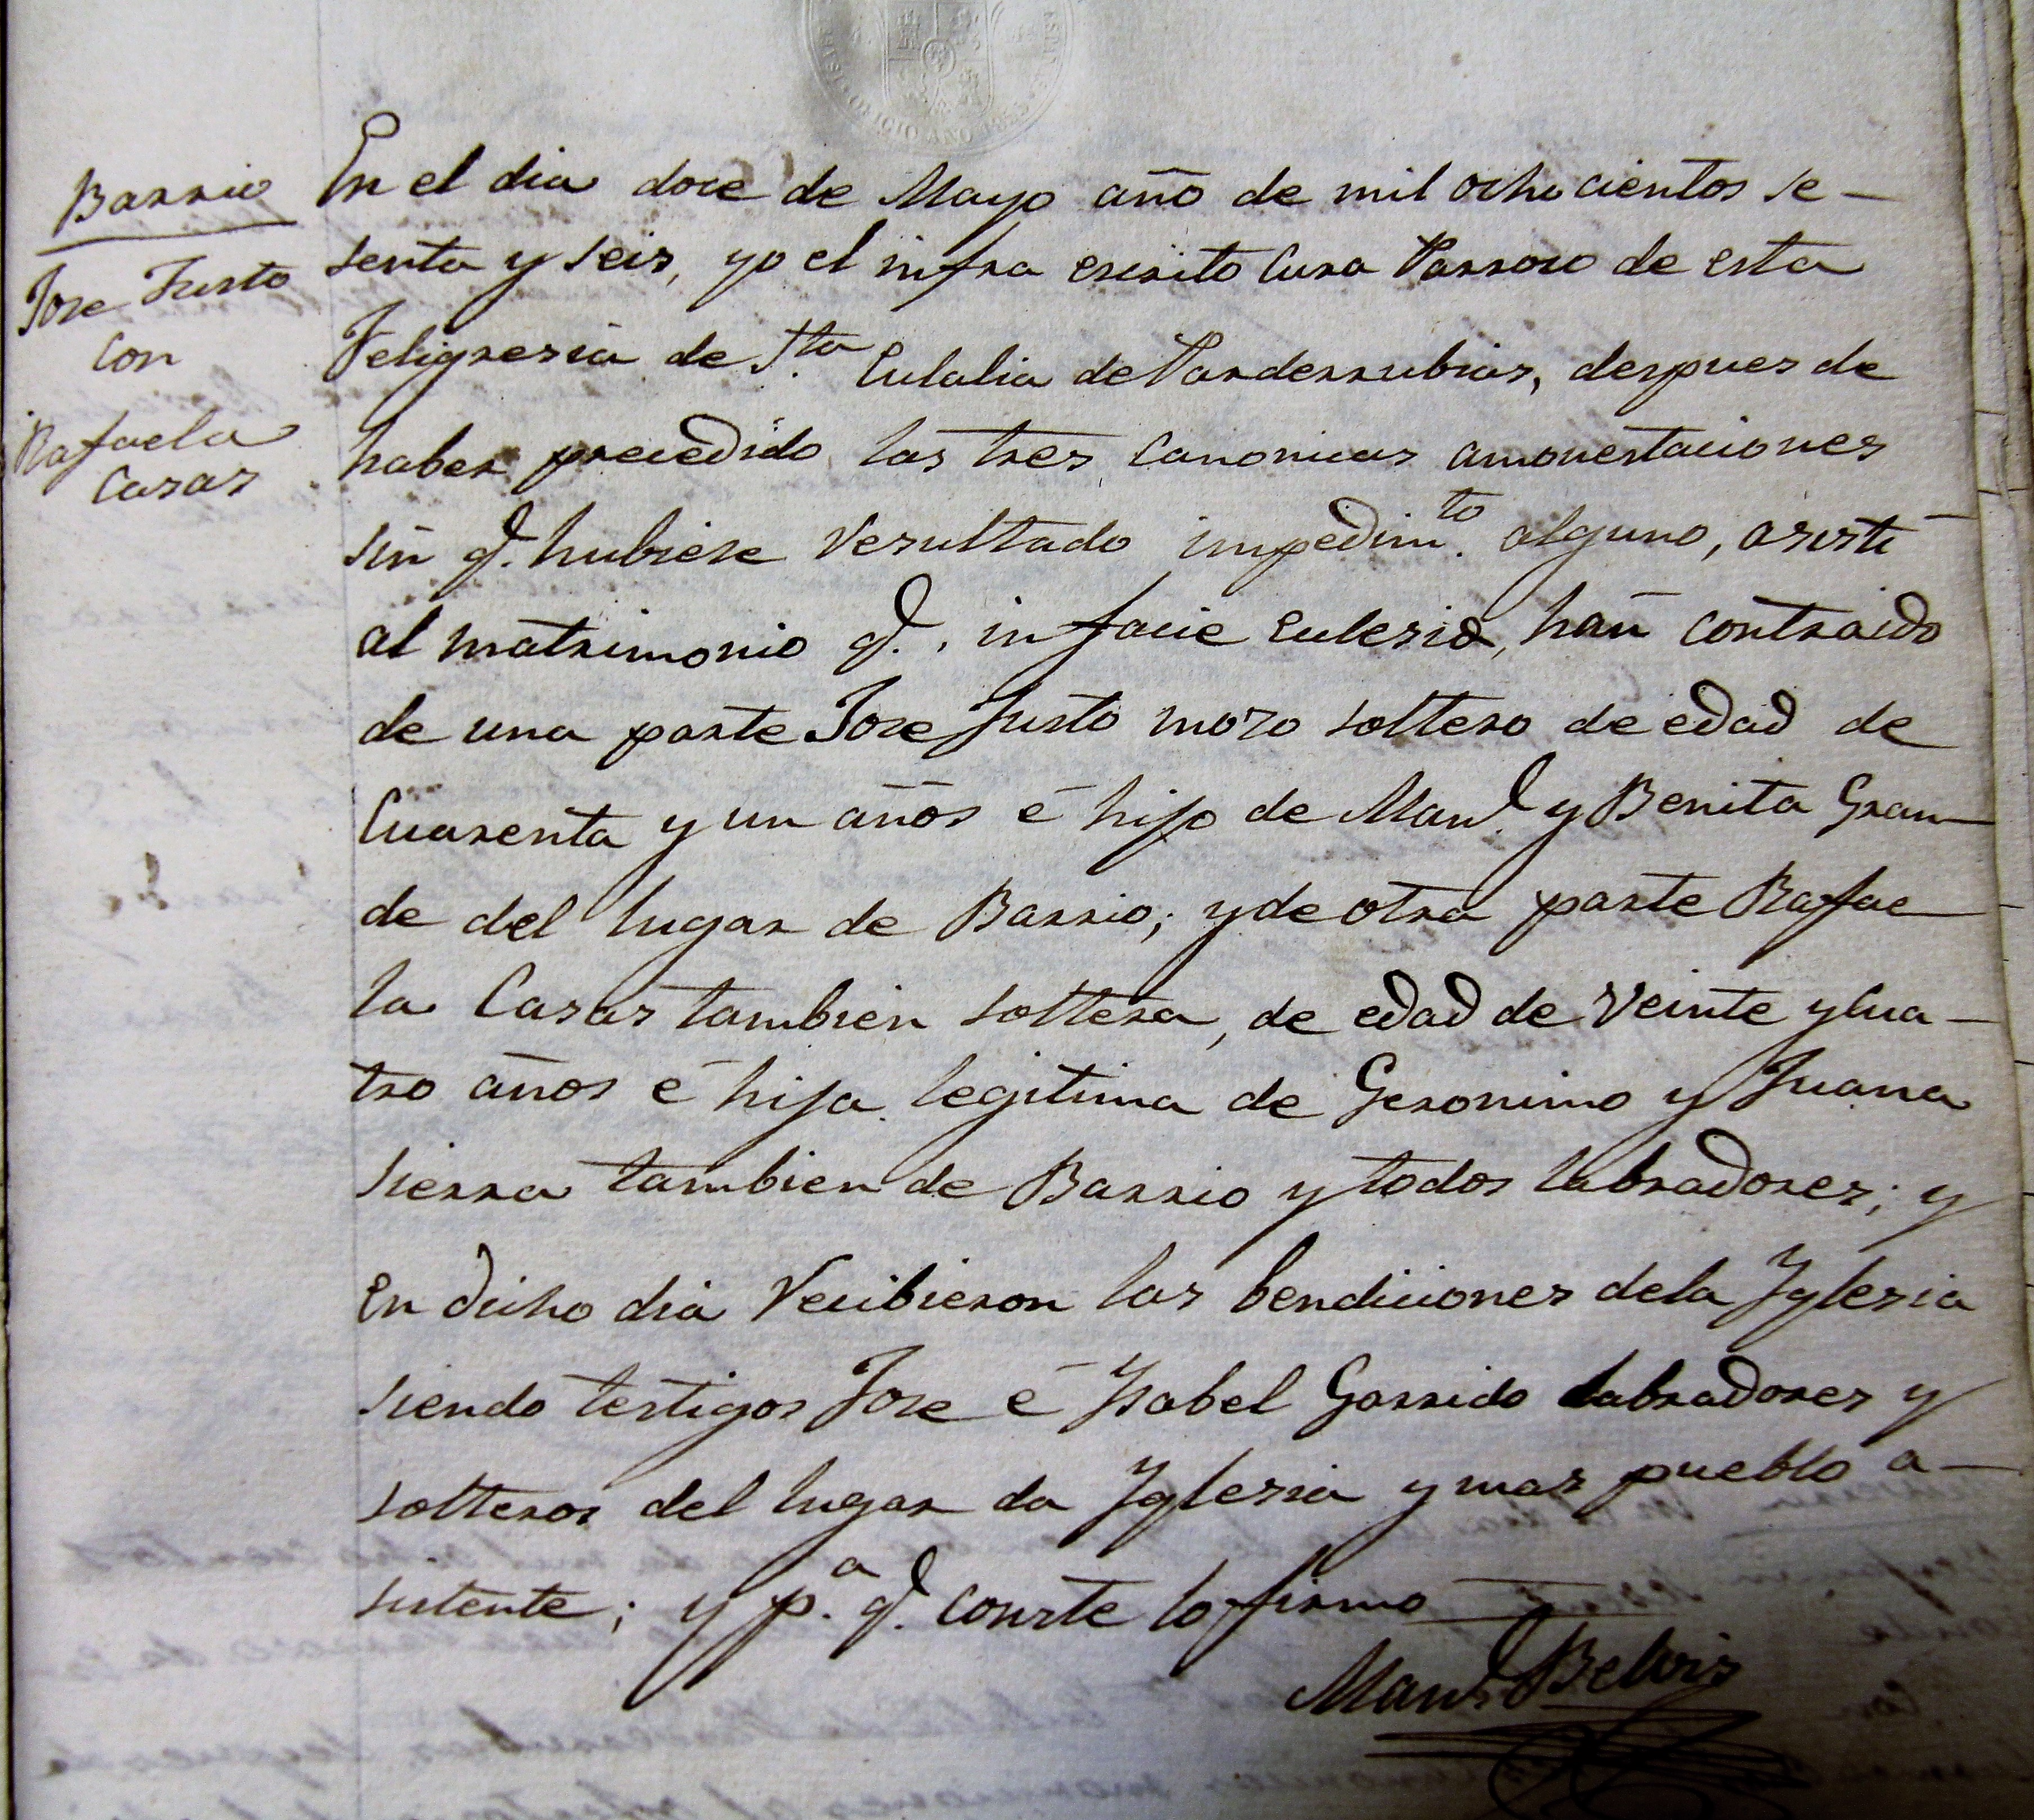 Barrio
Jose Justo
con
Rafaela
Casas
En el dia doce de Mayo año de mil ocho cientos se-
senta y seis, yo el infra escrito Cura Parroco de esta
Feligresia de Sta. Eulalia de Parderrubias, despues de
haber precedido las tres canonicas amonestaciones
sin q. hubiese resultado impedimto. alguno, asisti
al matrimonio q., in facie eclesia, han contraido
de una parte Jose Justo mozo soltero de edad de
Cuarenta y un años é hijo de Manl. y Benita Gran-
de del lugar de Barrio; y de otra parte Rafae-
la Casas tambien soltera, de edad de veinte y cua-
tro años é hija legitima de Geronimo y Juana
Sierra tambien de Barrio y todos labradores; y
en dicho dia recibieron las bendiciones de la Yglesia
siendo testigos Jose é Ysabel Garrido labradores y
solteros del lugar da Yglesia y mas pueblo a-
sistente; y pa. q. conste lo firmo
Manl. Belvis